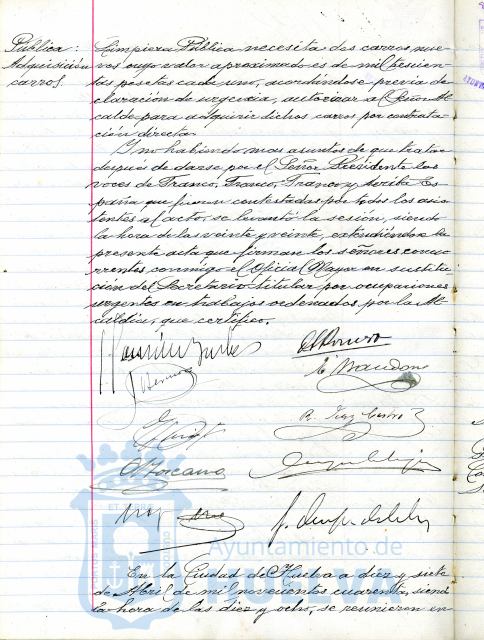 Pública:
Adquisición
carros.
Limpieza Pública necesita dos carros nue-
vos cuyo valor aproximado es de mil trescien-
tas pesetas cada uno, acordándose previa de-
claración de urgencia, autorizar al Señor Al-
calde para adquirir dichos carros por contrata-
ción directa.
Y no habiendo mas asuntos de que tratar
después de darse por el Señor Presidente las
voces de Franco, Franco, Franco y Arriba Es-
paña que fueron contestadas por todos los asis-
tentes al acto, se levantó la sesión, siendo
la hora de las veinte y veinte, extendiéndose la
presente acta que firman los señores concu-
rrentes conmigo el Oficial Mayor en sustitu-
ción del Secretario titular por ocupaciones
urgentes en trabajos ordenados por la Al-
caldía, que certifico.
Ayuntamiento de
HUELVA
En la Ciudad de Huelva a diez y siete
de Abril de mil novecientos cuarenta, siendo
la hora de las diez y ocho, se reunieron en